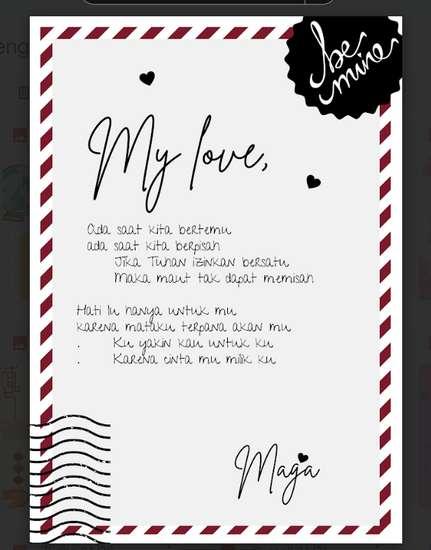 be
mine
My love,
Ada saat kita bertemu
ada saat kita berpisah
Jika Tuhan izinkan bersatu
Maka maut tak dapat memisah
Hati lu hanya untuk mu
karena mataku terpana akan mu
. Ku yakin kau untuk ku
. Karena cinta mu milik ku
Maga